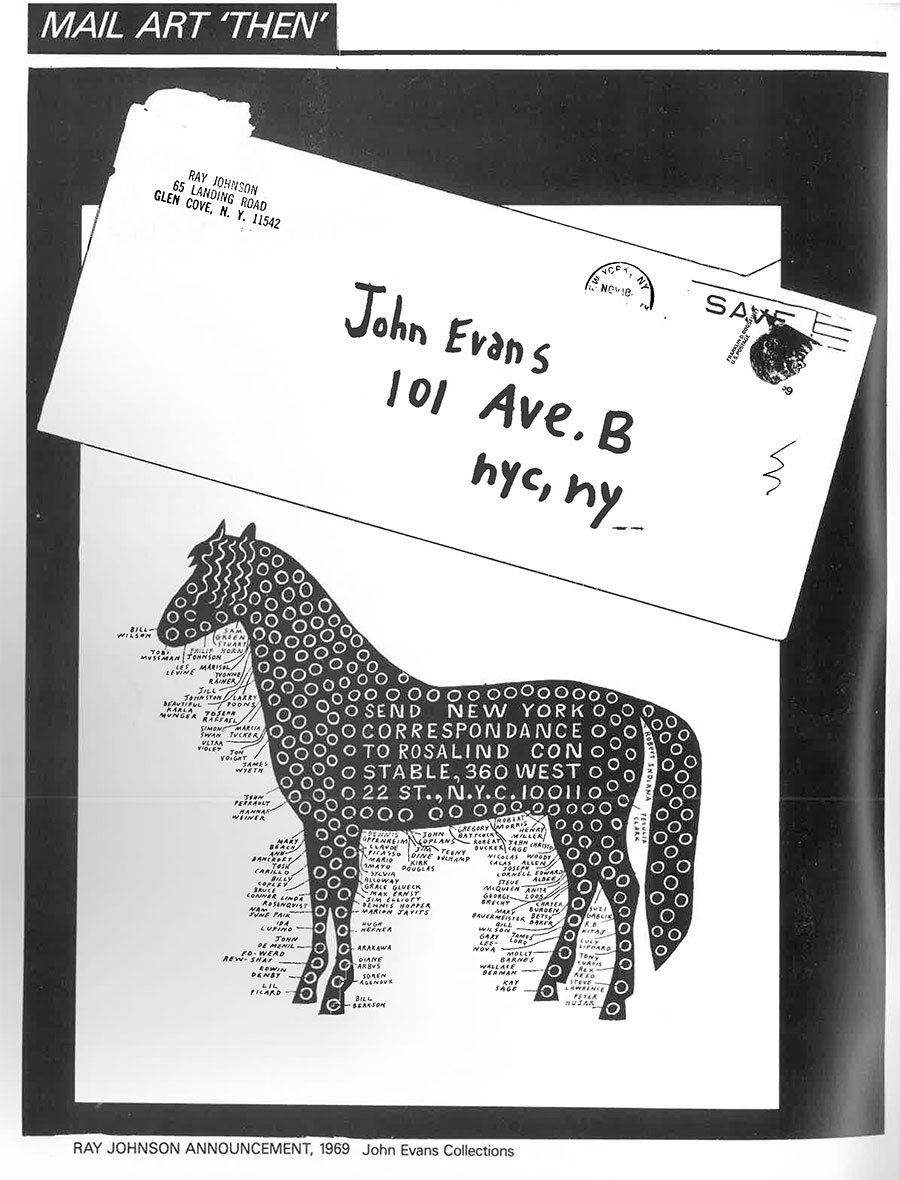 MAIL ART 'THEN'
RAY JOHNSON
65 LANDING ROAD
GLEN COVE, N. Y. 11542
NOV 18
SAVE
FRANKLIN D. ROOSEVELT
U.S. POSTAGE
John Evans
101 Ave. B
nyc, ny
BILL
WILSON
SAM
GREEN
STUART
HORN
TOBY
MUSSMAN
PHILIP
JOHNSON
LES
LEVINE
MARISOL
YVONNE
RAINER
JILL
JOHNSTON
LARRY
POONS
BEAUTIFUL
KARLA
MUNGER
JOSEPH
RAFFAEL
SIMONE
SWAN
MARCIA
TUCKER
ULTRA
VIOLET
JON
VOIGHT
JAMES
WYETH
JOHN
PERRAULT
HANNAH
WEINER
SEND NEW YORK
CORRESPONDANCE
TO ROSALIND CON
STABLE, 360 WEST
22 ST., N.Y.C. 10011
ROBERT INDIANA
CLARK
MARY
BEACH
ANN
BANCROFT
TOSH
CARILLO
BILLY
COPLEY
BRUCE
CONNER
LINDA
ROSENQVIST
NAM
JUNE PAIK
IDA
LUPINO
JOHN
DE MENIL
ED-WERD
REW-SHAY
EDWIN
DENBY
LIL
PICARD
DENNIS
OPPENHEIM
CLAUDE
PICASSO
MARIO
AMAYO
SYLVIA
ALLOWAY
GRACE GLUECK
MAX ERNST
JIM ELLIOTT
DENNIS HOPPER
MARION JAVITS
HUGH
HEFNER
ARAKAWA
DIANE
ARBUS
SOREN
AGENOUX
BILL
BERKSON
JOHN
COPLANS
JIM
DINE
KIRK
DOUGLAS
TEENY
DUCHAMP
GREGORY
BATTCOCK
ROBERT
BUCKER
ROBERT
MORRIS
HENRY
MILLER
JOHN
CAGE
CHRISTO
NICOLAS
CALAS
WOODY
ALLEN
JOSEPH
CORNELL
EDWARD
ALBEE
STEVE
McQUEEN
ANITA
LOOS
GEORGE
BRECHT
CARTER
BURDEN
MARY
BAUERMEISTER
BETSY
BAKER
BILL
WILSON
JAMES
LORD
GARY
LEE-
NOVA
MOLLY
BARNES
WALLACE
BERMAN
KAY
SAGE
SUZI
GABLIK
R.B.
KITAJ
LUCY
LIPPARD
TONY
CURTIS
REX
REED
STEVE
LAWRENCE
PETER
HUJAR
RAY JOHNSON ANNOUNCEMENT, 1969 John Evans Collections